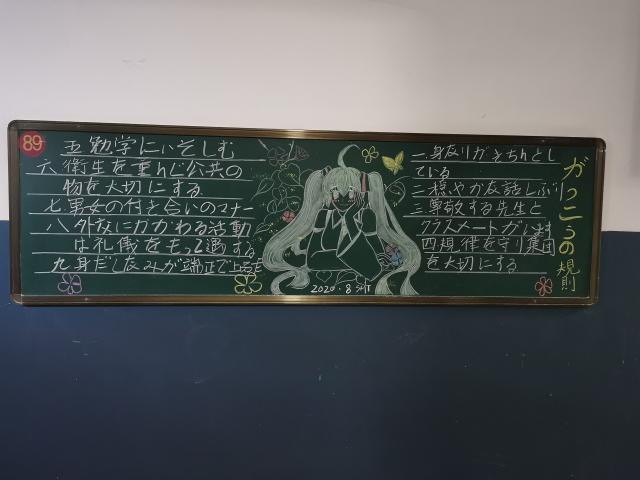 89
五勉学にいそしむ
六衛生を重んじ公共の
物を大切にする
七男女の付き合いのマナー
八外交にかかわる活動
は礼儀をもって遇する
九身だしなみが端正で上品
2020.8
一身なりがきちんとし
ている
二穏やかな話しぶり
三尊敬する先生と
クラスメートがいます
四規律を守り集団
を大切にする
がっこうの規則